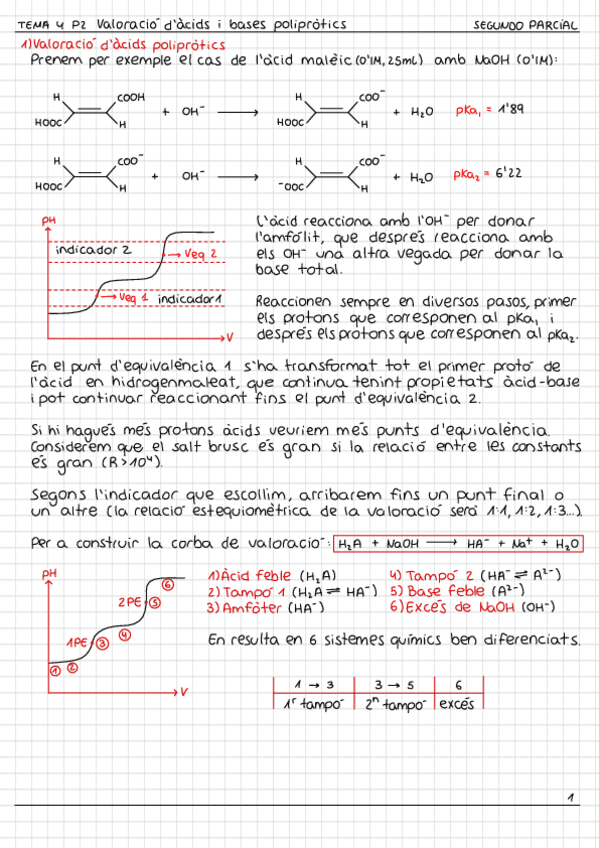 TEMA 4 P2 Valoració d'àcids i bases polipròtics SEGUNDO PARCIAL
1) Valoració d'àcids polipròtics
Prenem per exemple el cas de l'àcid malèic (0'1M, 25ml) amb NaOH (0'1M):
H COOH HOOC H + OH⁻ ⟶ H COO⁻ HOOC H + H₂O pKa₁ = 1'89
H COO⁻ HOOC H + OH⁻ ⟶ H COO⁻ ⁻OOC H + H₂O pKa₂ = 6'22
pH
indicador 2
Veq 2
Veq 1 indicador 1
V
L'àcid reacciona amb l'OH⁻ per donar
l'amfòlit, que després reacciona amb
els OH⁻ una altra vegada per donar la
base total.
Reaccionen sempre en diversos pasos, primer
els protons que corresponen al pKa₁ i
després els protons que corresponen al pKa₂.
En el punt d'equivalència 1 s'ha transformat tot el primer protó de
l'àcid en hidrogenmaleat, que continua tenint propietats àcid-base
i pot continuar reaccionant fins el punt d'equivalència 2.
Si hi hagués més protons àcids veuriem més punts d'equivalència.
Considerem que el salt brusc és gran si la relació entre les constants
és gran (R>10⁴).
Segons l'indicador que escollim, arribarem fins un punt final o
un altre (la relació estequiomètrica de la valoració serà 1:1, 1:2, 1:3...).
Per a construir la corba de valoració: H₂A + NaOH ⟶ HA⁻ + Na⁺ + H₂O
pH
⑥
2PE ⑤
④
1PE ③
① ②
V
1) Àcid feble (H₂A) 4) Tampó 2 (HA⁻ ⇌ A²⁻)
2) Tampó 1 (H₂A ⇌ HA⁻) 5) Base feble (A²⁻)
3) Amfòter (HA⁻) 6) Excés de NaOH (OH⁻)
En resulta en 6 sistemes químics ben diferenciats.
1 → 3 3 → 5 6
1ʳ tampó 2ⁿ tampó excés
1